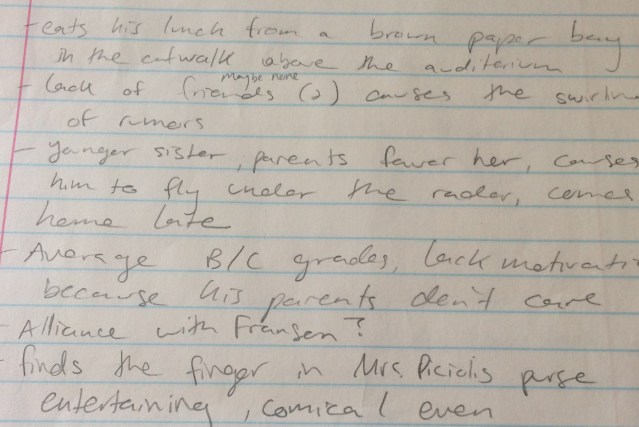 - eats his lunch from a brown paper bag
in the catwalk above the auditorium
maybe none
- lack of friends (2) causes the swirlin
of rumors
- younger sister, parents favor her, causes
him to fly under the radar, comes
home late
- Average B/C grades, lack motivati
because his parents don't care
- Alliance with Fransen?
- finds the finger in Mrs. Piciolis purse
entertaining, comical even